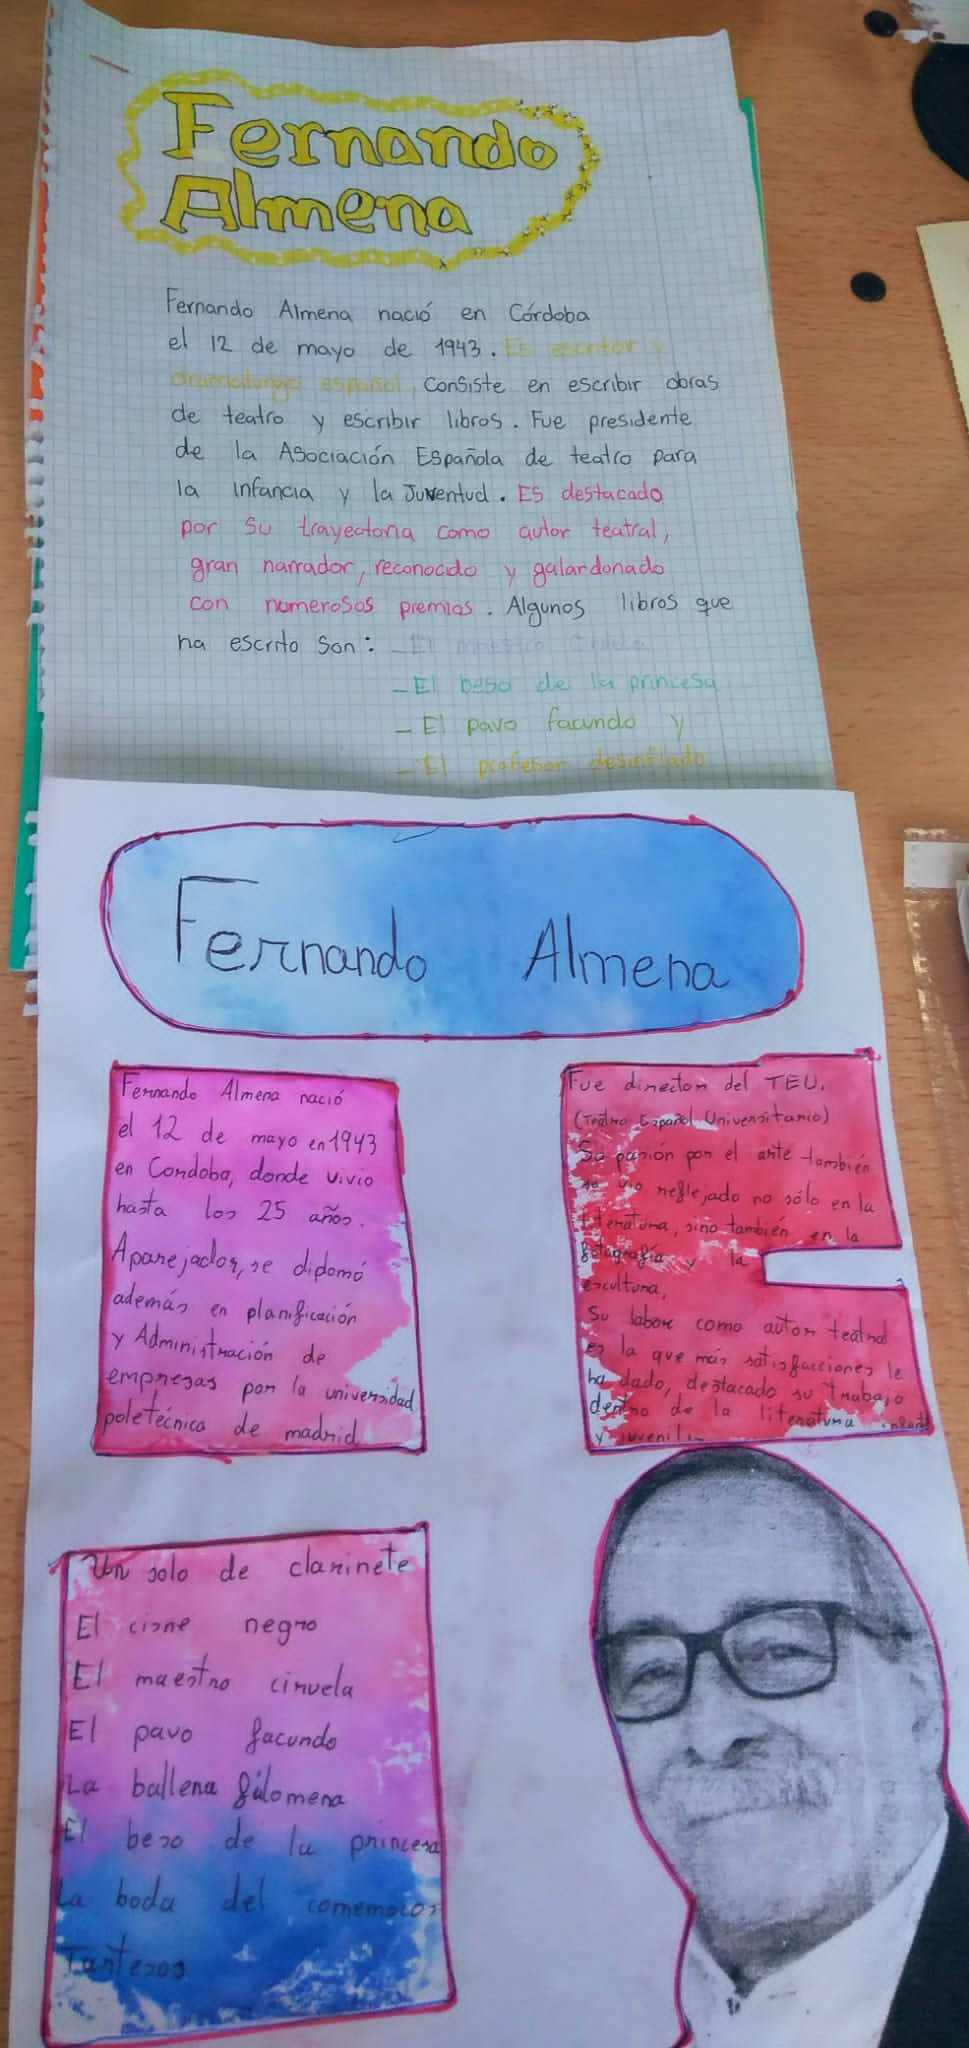 Fernando
Almena
Fernando Almena nació en Córdoba
el 12 de mayo de 1943. Es escritor y
dramaturgo español. Consiste en escribir obras
de teatro y escribir libros. Fue presidente
de la Asociación Española de teatro para
la infancia y la Juventud. Es destacado
por su trayectoria como autor teatral,
gran narrador, reconocido y galardonado
con numerosos premios. Algunos libros que
ha escrito son: - El maestro
- El beso de la princesa
- El pavo facundo y
- El profesor desinflado
Fernando Almena
Fernando Almena nació
el 12 de mayo en 1943
en Cordoba, donde vivio
hasta los 25 años.
Aparejador, se diplomó
además en planificación
y Administración de
empresas por la universidad
poletécnica de madrid
Fue director del TEU.
(Teatro Español Universitario)
Su pasión por el arte también
se vio reflejado no sólo en la
literatura, sino también en la
fotografía y la
escultura,
Su labor como autor teatral
es la que más satisfacciones le
ha dado, destacado su trabajo
dentro de la literatura infantil
y juvenil.
Un solo de clarinete
El cisne negro
El maestro ciruela
El pavo facundo
La ballena filomena
El beso de la princesa
La boda del comemocos
Tartesos